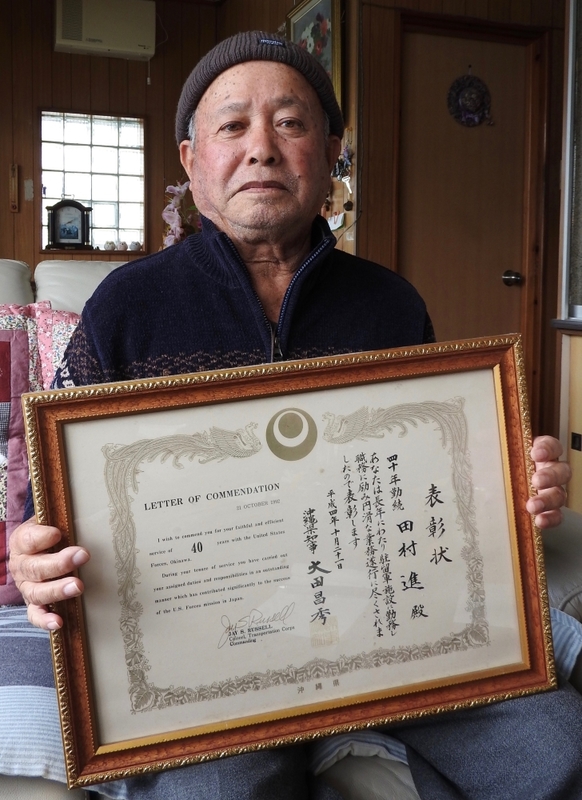 LETTER OF COMMENDATION
21 OCTOBER 1992
I wish to commend you for your faithful and efficient
service of 40 years with the United States
Forces, Okinawa.
During your tenure of service you have carried out
your assigned duties and responsibilities in an outstanding
manner which has contributed significantly to the success
of the U.S. Forces mission in Japan.
Jay S. Russell
JAY S. RUSSELL
Colonel, Transportation Corps
Commanding
表彰状
四十年勤続 田村 進 殿
あなたは長年にわたり駐留軍施設に勤務し
職務に励み円滑な業務遂行に尽くされま
したので表彰します
平成四年十月二十一日
沖縄県知事 大田昌秀
沖縄県